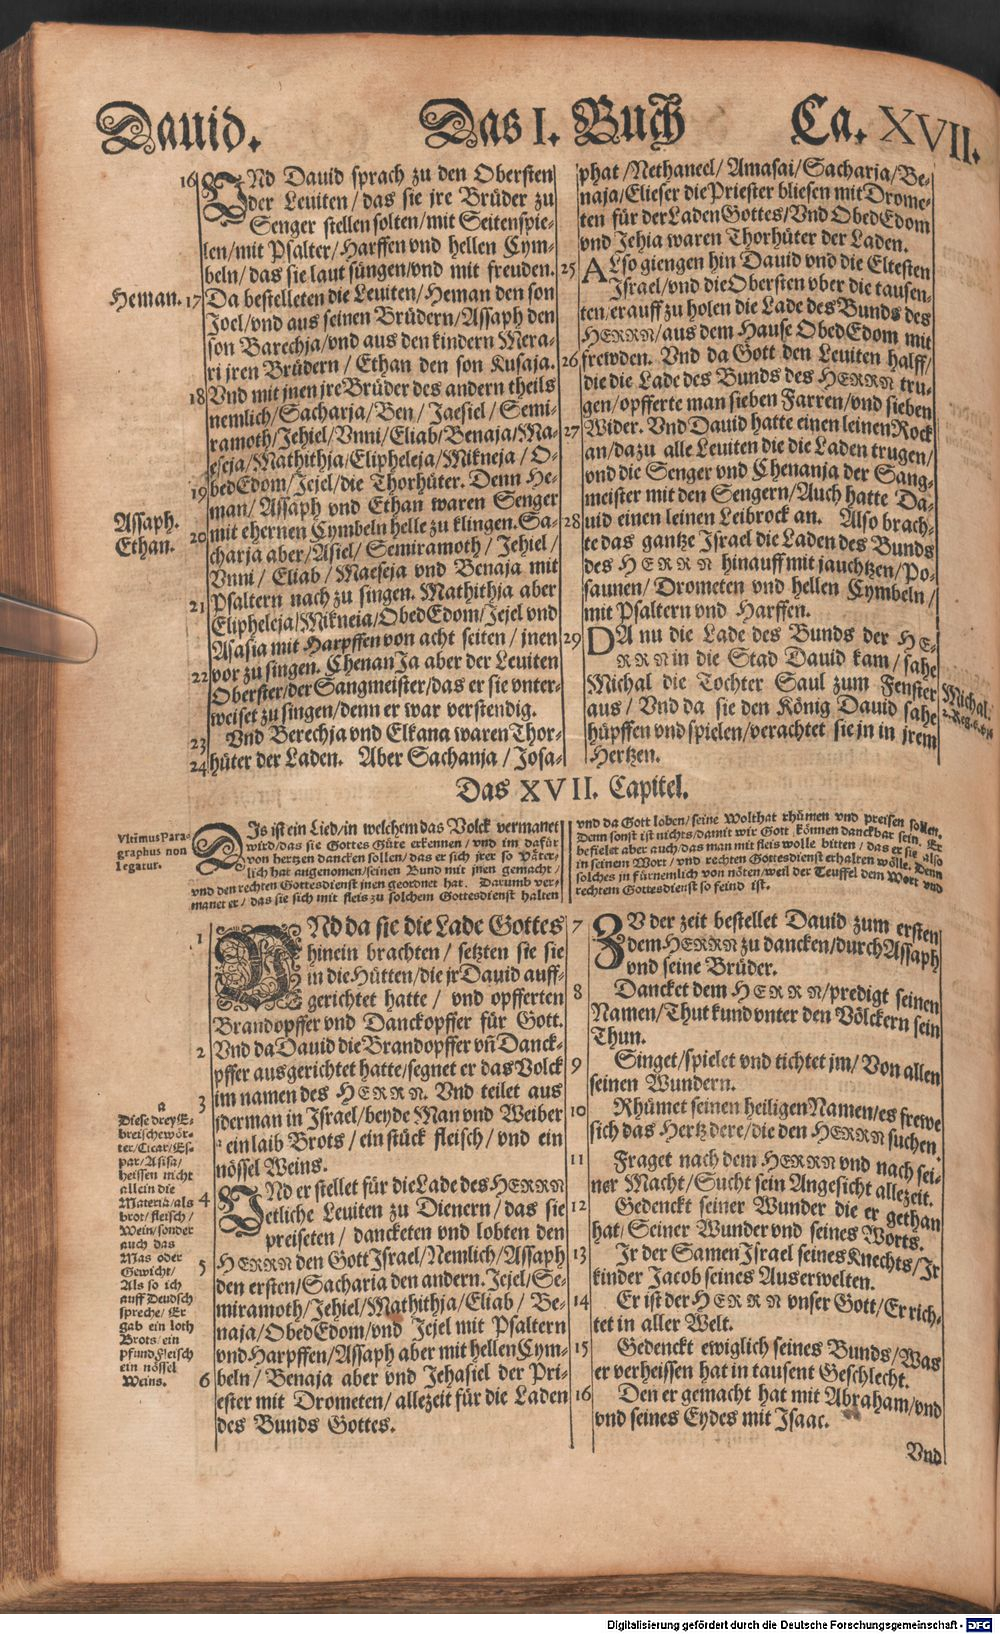 Dauid. Das I. Buch Ca. XVII.
16 VNd Dauid sprach zu den Obersten
der Leuiten/das sie jre Brüder zu
Senger stellen solten/mit Seitenspie-
len/mit Psalter/Harffen vnd hellen Cym-
beln/das sie laut süngen/vnd mit freuden.
Heman. 17 Da bestelleten die Leuiten/Heman den son
Joel/vnd aus seinen Brüdern/Assaph den
son Barechja/vnd aus den kindern Mera-
ri jren Brüdern/Ethan den son Kusaja.
18 Vnd mit jnen jre Brüder des andern theils
nemlich/Sacharja/Ben/Jaesiel/Semi-
ramoth/Jehiel/Vnni/Eliab/Benaja/Ma-
eseja/Mathithja/Elipheleja/Mikneja/O-
19 bedEdom/Jejel/die Thorhüter. Denn He-
man/Assaph vnd Ethan waren Senger
Assaph.
Ethan.
20 mit ehernen Cymbeln helle zu klingen. Sa-
charja aber/Asiel/Semiramoth/Jehiel/
Vnni/Eliab/Maeseja vnd Benaja mit
21 Psaltern nach zu singen. Mathithja aber
Elipheleja/Mikneia/ObedEdom/Jejel vnd
Asasia mit Harpffen von acht seiten/jnen
22 vor zu singen. ChenanJa aber der Leuiten
Oberster/der Sangmeister/das er sie vnter-
weiset zu singen/denn er war verstendig.
23 Vnd Berechja vnd Elkana waren Thor-
24 hüter der Laden. Aber Sachanja/Josa-
phat/Nethaneel/Amasai/Sacharja/Be-
naja/Elieser die Priester bliesen mit Drome-
ten für der Laden Gottes/Vnd ObedEdom
vnd Jehia waren Thorhüter der Laden.
25 ALso giengen hin Dauid vnd die Eltesten
Israel/vnd die Obersten vber die tausen-
ten/erauff zu holen die Lade des Bunds des
HERRN/aus dem Hause ObedEdom mit
26 frewden. Vnd da Gott den Leuiten halff/
die die Lade des Bunds des HERRN tru-
gen/opfferte man sieben Farren/vnd sieben
27 Wider. Vnd Dauid hatte einen leinen Rock
an/dazu alle Leuiten die die Laden trugen/
vnd die Senger vnd Chenanja der Sang-
meister mit den Sengern/Auch hatte Da-
28 uid einen leinen Leibrock an. Also brach-
te das gantze Israel die Laden des Bunds
des HERRN hinauff mit jauchtzen/Po-
saunen/Drometen vnd hellen Cymbeln/
mit Psaltern vnd Harffen.
29 DA nu die Lade des Bunds der HE-
RRN in die Stad Dauid kam/sahe
Michal die Tochter Saul zum Fenster
Michal.
2. Reg. 6.
aus/Vnd da sie den König Dauid sahe
hüpffen vnd spielen/verachtet sie jn in jrem
Hertzen.
Das XVII. Capitel.
Vltimus Para-
graphus non
legatur.
DIs ist ein Lied/in welchem das Volck vermanet
wird/das sie Gottes Güte erkennen/vnd im dafür
von hertzen dancken sollen/das er sich jrer so Väter-
lich hat angenomen/seinen Bund mit jnen gemacht/
vnd den rechten Gottesdienst jnen geordnet hat. Darumb ver-
manet er/das sie sich mit fleis zu solchem Gottesdienst halten
vnd da Gott loben/seine Wolthat rhümen vnd preisen sollen.
Denn sonst ist nichts/damit wir Gott können danckbar sein. Er
befielet aber auch/das man mit fleis wolle bitten/das er sie also
in seinem Wort/vnd rechten Gottesdienst erhalten wölle. Denn
solches jn fürnemlich von nöten/weil der Teuffel dem Wort vnd
rechtem Gottesdienst so feind ist.
1 VNd da sie die Lade Gottes
hinein brachten/setzten sie sie
in die Hütten/die jr Dauid auff-
gerichtet hatte/vnd opfferten
Brandopffer vnd Danckopffer für Gott.
2 Vnd da Dauid die Brandopffer vñ Danck-
pffer ausgerichtet hatte/segnet er das Volck
im namen des HERRN. Vnd teilet aus
3 jderman in Israel/beyde Man vnd Weiber
a ein laib Brots/ein stück fleisch/vnd ein
nössel Weins.
a
Diese drey E-
breischewör-
ter/Cicar/Es-
par/Asisa/
heissen nicht
allein die
Materiä/als
brot/fleisch/
Wein/sonder
auch das
Mas oder
Gewicht/
Als so ich
auff Deudsch
spreche/Er
gab ein loth
Brots/ein
pfund Fleisch
ein nössel
Weins.
4 VNd er stellet für die Lade des HERRN
etliche Leuiten zu Dienern/das sie
preiseten/dancketen vnd lobten den
5 HERRN den Gott Israel/Nemlich/Assaph
den ersten/Sacharia den andern. Jejel/Se-
miramoth/Jehiel/Mathithja/Eliab/Be-
naja/ObedEdom/vnd Jejel mit Psaltern
vnd Harpffen/Assaph aber mit hellen Cym-
6 beln/Benaja aber vnd Jehasiel der Pri-
ester mit Drometen/allezeit für die Laden
des Bunds Gottes.
7 ZV der zeit bestellet Dauid zum ersten
dem HERRN zu dancken/durch Assaph
vnd seine Brüder.
8 Dancket dem HERRN/predigt seinen
Namen/Thut kund vnter den Völckern sein
Thun.
9 Singet/spielet vnd tichtet jm/Von allen
seinen Wundern.
10 Rhümet seinen heiligen Namen/es frewe
sich das Hertz dere/die den HERRN suchen.
11 Fraget nach dem HERRN vnd nach sei-
ner Macht/Sucht sein Angesicht allezeit.
12 Gedenckt seiner Wunder die er gethan
hat/Seiner Wunder vnd seines Worts.
13 Jr der Samen Israel seines Knechts/Jr
kinder Jacob seines Auserwelten.
14 Er ist der HERRN vnser Gott/Er rich-
tet in aller Welt.
15 Gedenckt ewiglich seines Bunds/Was
er verheissen hat in tausent Geschlecht.
16 Den er gemacht hat mit Abraham/vnd
vnd seines Eydes mit Isaac.
Vnd
Digitalisierung gefördert durch die Deutsche Forschungsgemeinschaft - DFG